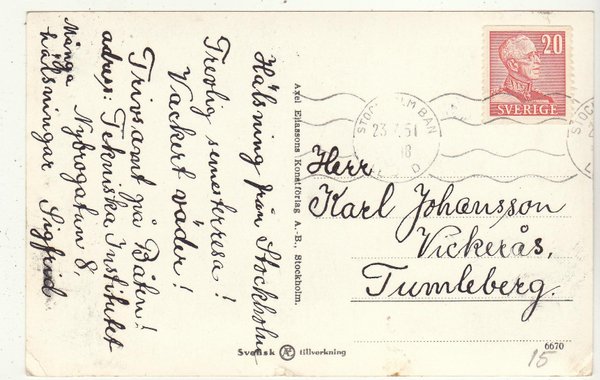 Hälsning från Stockholm
Trevlig semesterresa!
Vackert väder!
Trivsamt på Båten!
adress: Tekniska Institutet
Nybrogatan 8.
Många
hälsningar Sigfrid.
Axel Eliassons Konstförlag A.-B., Stockholm.
20
SVERIGE
STOCKHOLM BAN
23.7.51
18
Herr
Karl Johansson
Vickerås,
Tumleberg.
Svensk AE tillverkning
6670
15